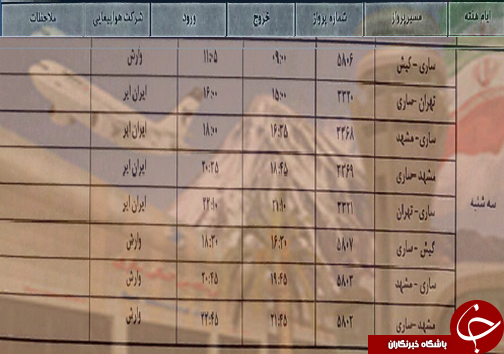 ایام هفته مسیرپرواز شماره پرواز خروج ورود شرکت هواپیمایی ملاحظات
سه شنبه
ساری-کیش ۵۸۰۶ ۰۹:۰۰ ۱۱:۰۵ وارش
تهران-ساری ۳۳۲۰ ۱۵:۰۰ ۱۶:۰۰ ایران ایر
ساری-مشهد ۳۳۶۸ ۱۶:۳۵ ۱۸:۰۰ ایران ایر
مشهد-ساری ۳۳۶۹ ۱۸:۴۵ ۲۰:۳۵ ایران ایر
ساری-تهران ۳۳۲۱ ۲۱:۱۰ ۲۲:۱۰ ایران ایر
کیش-ساری ۵۸۰۷ ۱۶:۲۰ ۱۸:۲۰ وارش
ساری-مشهد ۵۸۰۳ ۱۹:۴۵ ۲۰:۴۵ وارش
مشهد-ساری ۵۸۰۲ ۲۱:۴۵ ۲۲:۴۵ وارش
باشگاه خبرنگاران